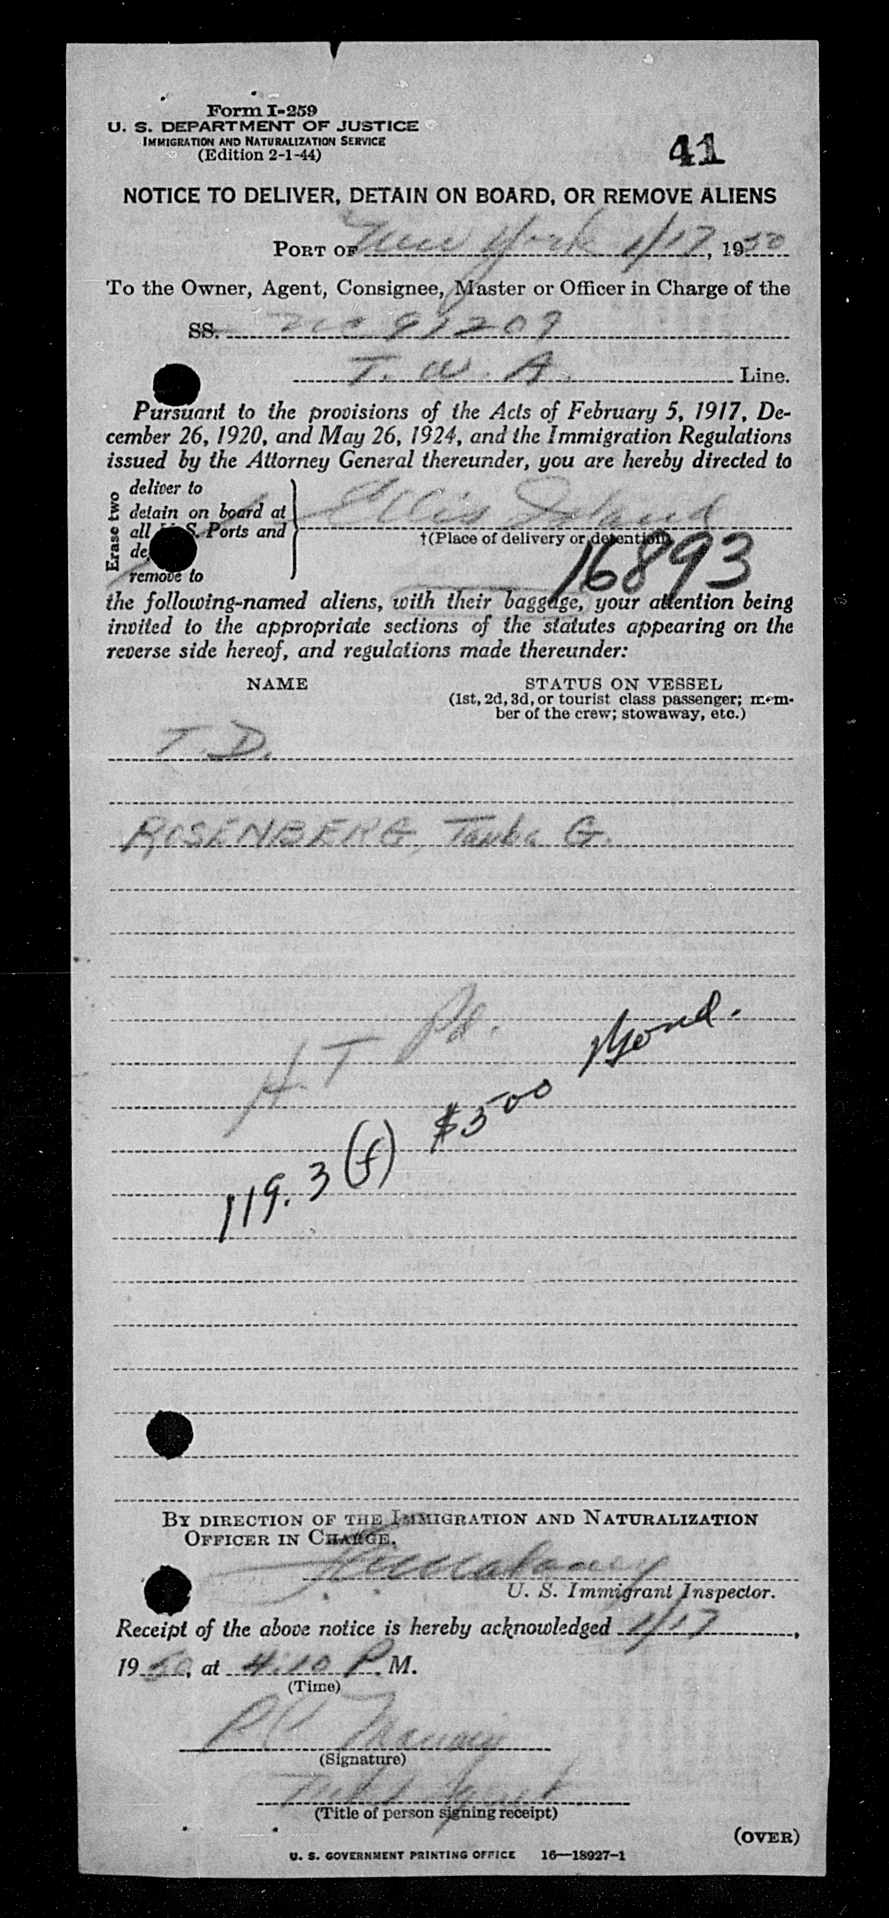 Form I-259
U. S. DEPARTMENT OF JUSTICE
IMMIGRATION AND NATURALIZATION SERVICE
(Edition 2-1-44)
41
NOTICE TO DELIVER, DETAIN ON BOARD, OR REMOVE ALIENS
PORT OF New York 1/17, 1950
To the Owner, Agent, Consignee, Master or Officer in Charge of the
SS. 91209
T. W. A. Line.
Pursuant to the provisions of the Acts of February 5, 1917, De-
cember 26, 1920, and May 26, 1924, and the Immigration Regulations
issued by the Attorney General thereunder, you are hereby directed to
Erase two
deliver to
detain on board at
all U. S. Ports and
remove to
Ellis Island
†(Place of delivery or detention)
16893
the following-named aliens, with their baggage, your attention being
invited to the appropriate sections of the statutes appearing on the
reverse side hereof, and regulations made thereunder:
NAME
STATUS ON VESSEL
(1st, 2d, 3d, or tourist class passenger; mem-
ber of the crew; stowaway, etc.)
T. D.
ROSENBERG, Tauba G.
H. T Pd.
119. 3 (f) $500 Bond.
BY DIRECTION OF THE IMMIGRATION AND NATURALIZATION
OFFICER IN CHARGE.
U. S. Immigrant Inspector.
Receipt of the above notice is hereby acknowledged 1/17,
1950, at 4:10 P. M.
(Time)
(Signature)
(Title of person signing receipt)
(OVER)
U. S. GOVERNMENT PRINTING OFFICE 16—18927-1